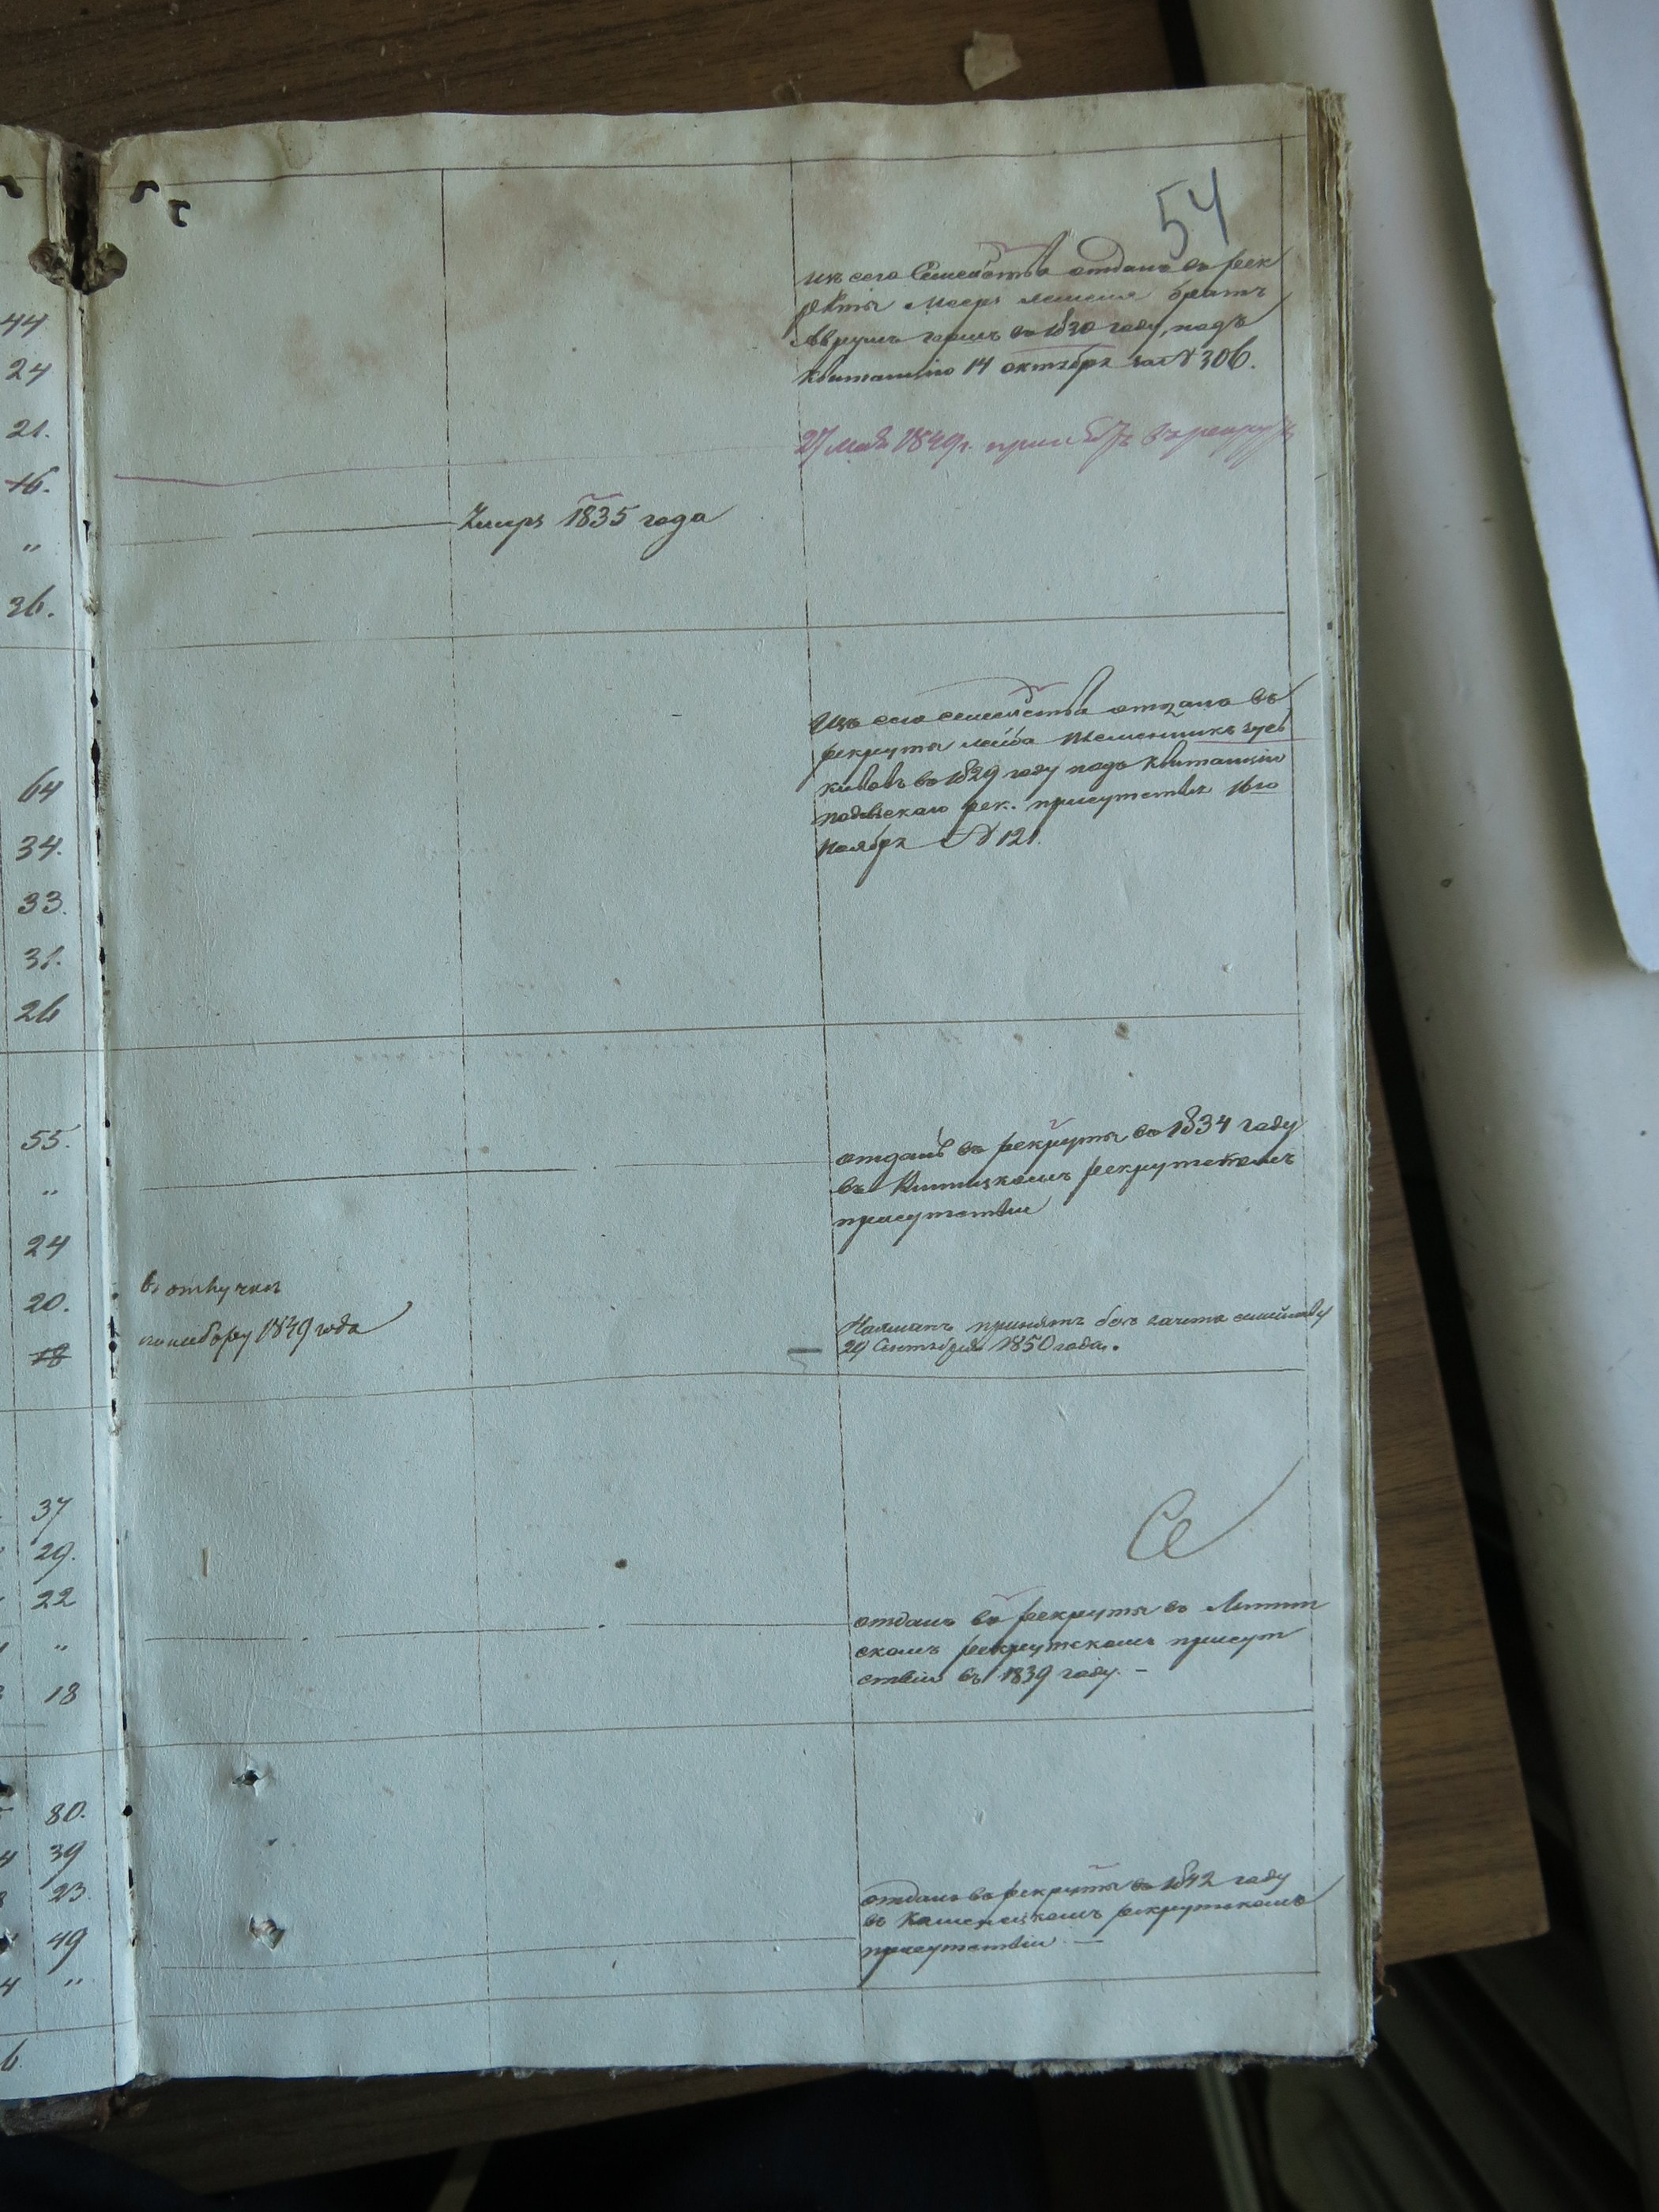 54
44
24
21.
16.
"
36.
изъ сего Семейства отданъ въ рек
руты Мееръ братъ
Аврумъ въ 1830 году, подъ
квитанцію 14 октября за № 306.
27 мая 1849 г. принятъ в рекруты
Умеръ 1835 года
64
34.
33.
31.
26
Изъ сего семейства отдано въ
рекруты лейба племянникъ
въ 1829 году подъ квитанцію
подольскаго рек. присутствія 16го
Ноября № 121.
55.
"
24
20.
18
отданъ въ рекруты въ 1834 году
въ рекрутскомъ
присутствіи
в отлучки
по набору 1849 года
Калманъ принятъ безъ зачета семейству
29 Сентября 1850 года.
37
29.
22
"
18
отданъ въ рекруты въ Литин
скомъ рекрутскомъ присут
ствіи въ 1839 году. —
80.
39
23.
49
"
6
отданъ въ рекруты въ 1842 году
въ Каменецкомъ рекрутскомъ
присутствіи. —